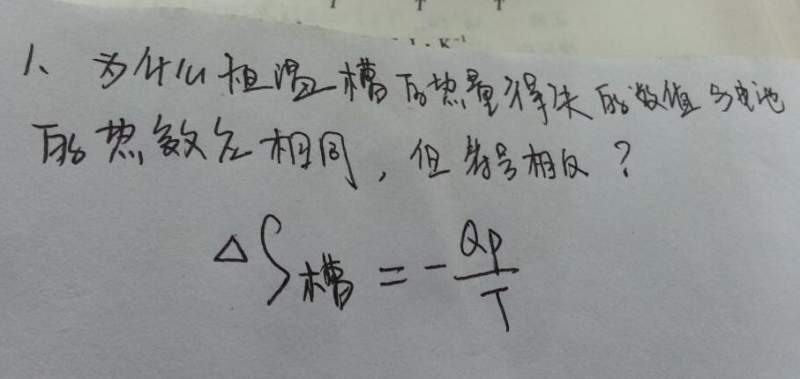 T T T
J · K⁻¹
1、为什么恒温槽的热量得失的数值与电池
的热效应相同，但符号相反？
ΔS槽 = - Qp/T